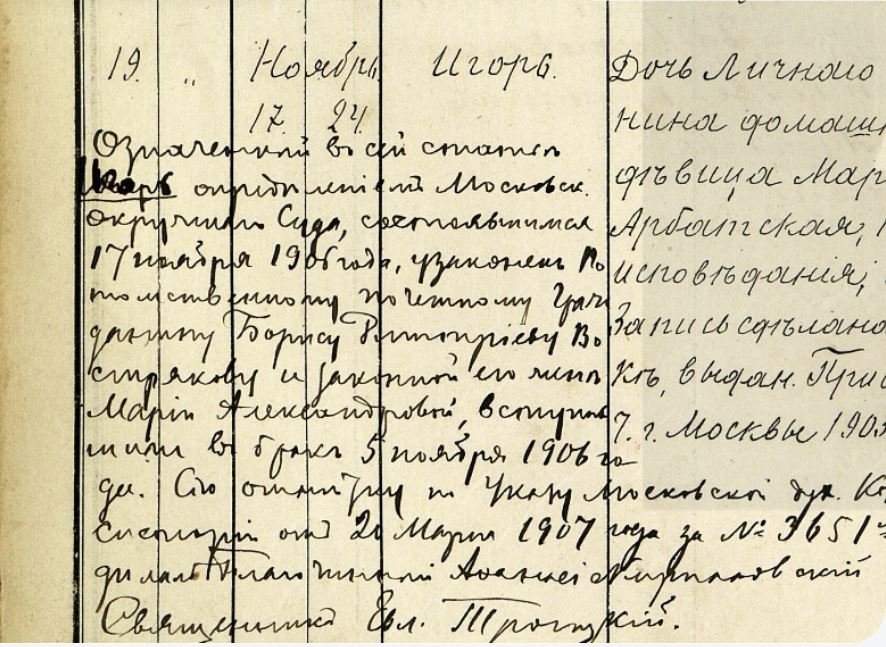 19. " Ноябрь Игорь. Дочь Личнаго
17. 24. нина домаш
Означенный въ сей статьѣ
Игорь опредѣленiемъ Московск. дѣвица Мар
Окружнаго Суда, состоявшимся Арбатская,
17 ноября 1906 года, узаконенъ По исповѣданiя;
томственному почетному Граж Запись сдѣлана
данину Борису Димитрiеву Во
стрякову и законной его женѣ въ, выдан. При
Марiи Александровой, вступив 7. г. Москвы 190
шими въ бракъ 5 ноября 1906 го
да. Сiю отмѣтку по Указу Московской дух. Ко
нсисторiи отъ 20 Марта 1907 года за № 3651
дѣлалъ Благочинный
Священникъ Евл. Троицкiй.